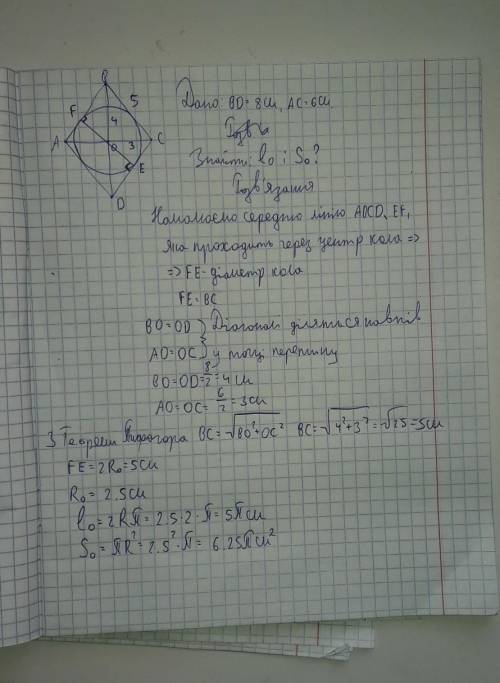 B
F 5
4
A O 3 C
E
D
Дано: BD = 8см, AC = 6см
Знайти: l₀ і S₀?
Розв'язання
Намалюємо середню лінію ABCD, EF,
яка проходить через центр кола =>
=> FE - діаметр кола
FE = BC
BO = OD } Діагоналі діляться навпіл
AO = OC } у точці перетину
BO = OD = 8/2 = 4см
AO = OC = 6/2 = 3см
З Теореми Піфагора BC = √BO²+OC² BC = √4²+3² = √25 = 5см
FE = 2R₀ = 5см
R₀ = 2.5см
l₀ = 2Rπ = 2.5·2·π = 5πсм
S₀ = πR² = 2.5²·π = 6.25πсм²